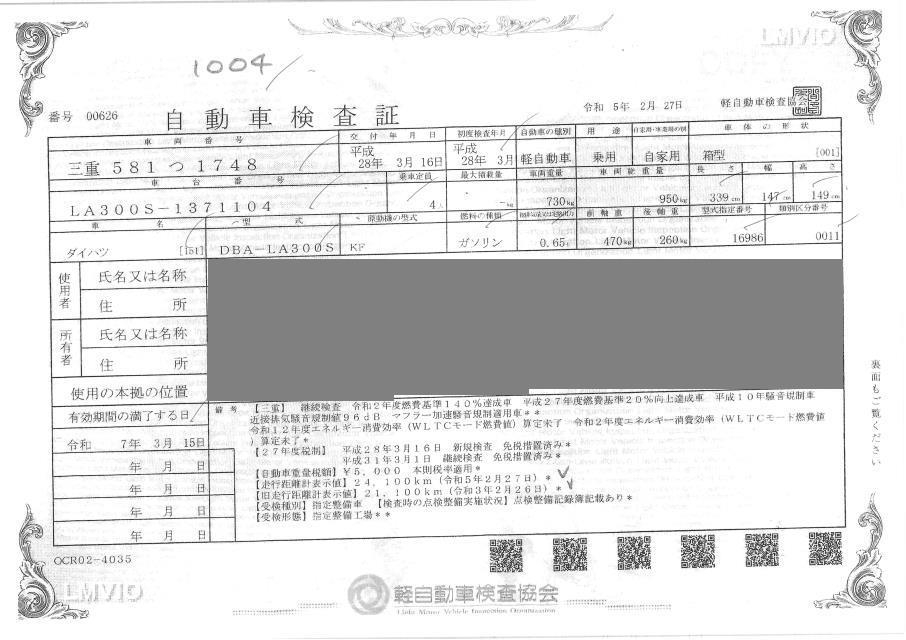 LMVIO
1004
令和 5年 2月 27日 軽自動車検査協会
番号 00626 自動車検査証
車両番号 交付年月日 初度検査年月 自動車の種別 用途 自家用・事業用の別 車体の形状
三重 581 つ 1748 平成 28年 3月 16日 平成 28年 3月 軽自動車 乗用 自家用 箱型 [001]
車台番号 乗車定員 最大積載量 車両重量 車両総重量 長さ 幅 高さ
LA300S-1371104 4人 -kg 730kg 950kg 339cm 147cm 149cm
車名 型式 原動機の型式 燃料の種類 前軸重 後軸重 型式指定番号 類別区分番号
ダイハツ [151] DBA-LA300S KF ガソリン 0.65ℓ 470kg 260kg 16986 0011
使用者 氏名又は名称
住所
所有者 氏名又は名称
住所
使用の本拠の位置
有効期間の満了する日
令和 7年 3月 15日
年 月 日
年 月 日
年 月 日
年 月 日
備考
【三重】 継続検査 令和2年度燃費基準140%達成車 平成27年度燃費基準20%向上達成車 平成10年騒音規制車
近接排気騒音規制値96dB マフラー加速騒音規制適用車**
令和12年度エネルギー消費効率(WLTCモード燃費値)算定未了 令和2年度エネルギー消費効率(WLTCモード燃費値
)算定未了*
【27年度税制】 平成28年3月16日 新規検査 免税措置済み*
平成31年3月1日 継続検査 免税措置済み*
【自動車重量税額】¥5,000 本則税率適用*
【走行距離計表示値】24,100km(令和5年2月27日)*
【旧走行距離計表示値】21,100km(令和3年2月26日)*
【受検種別】指定整備車 【検査時の点検整備実施状況】点検整備記録簿記載あり*
【受検形態】指定整備工場**
裏面もご覧ください
OCR02-4035
LMVIO
軽自動車検査協会
Light Motor Vehicle Inspection Organization